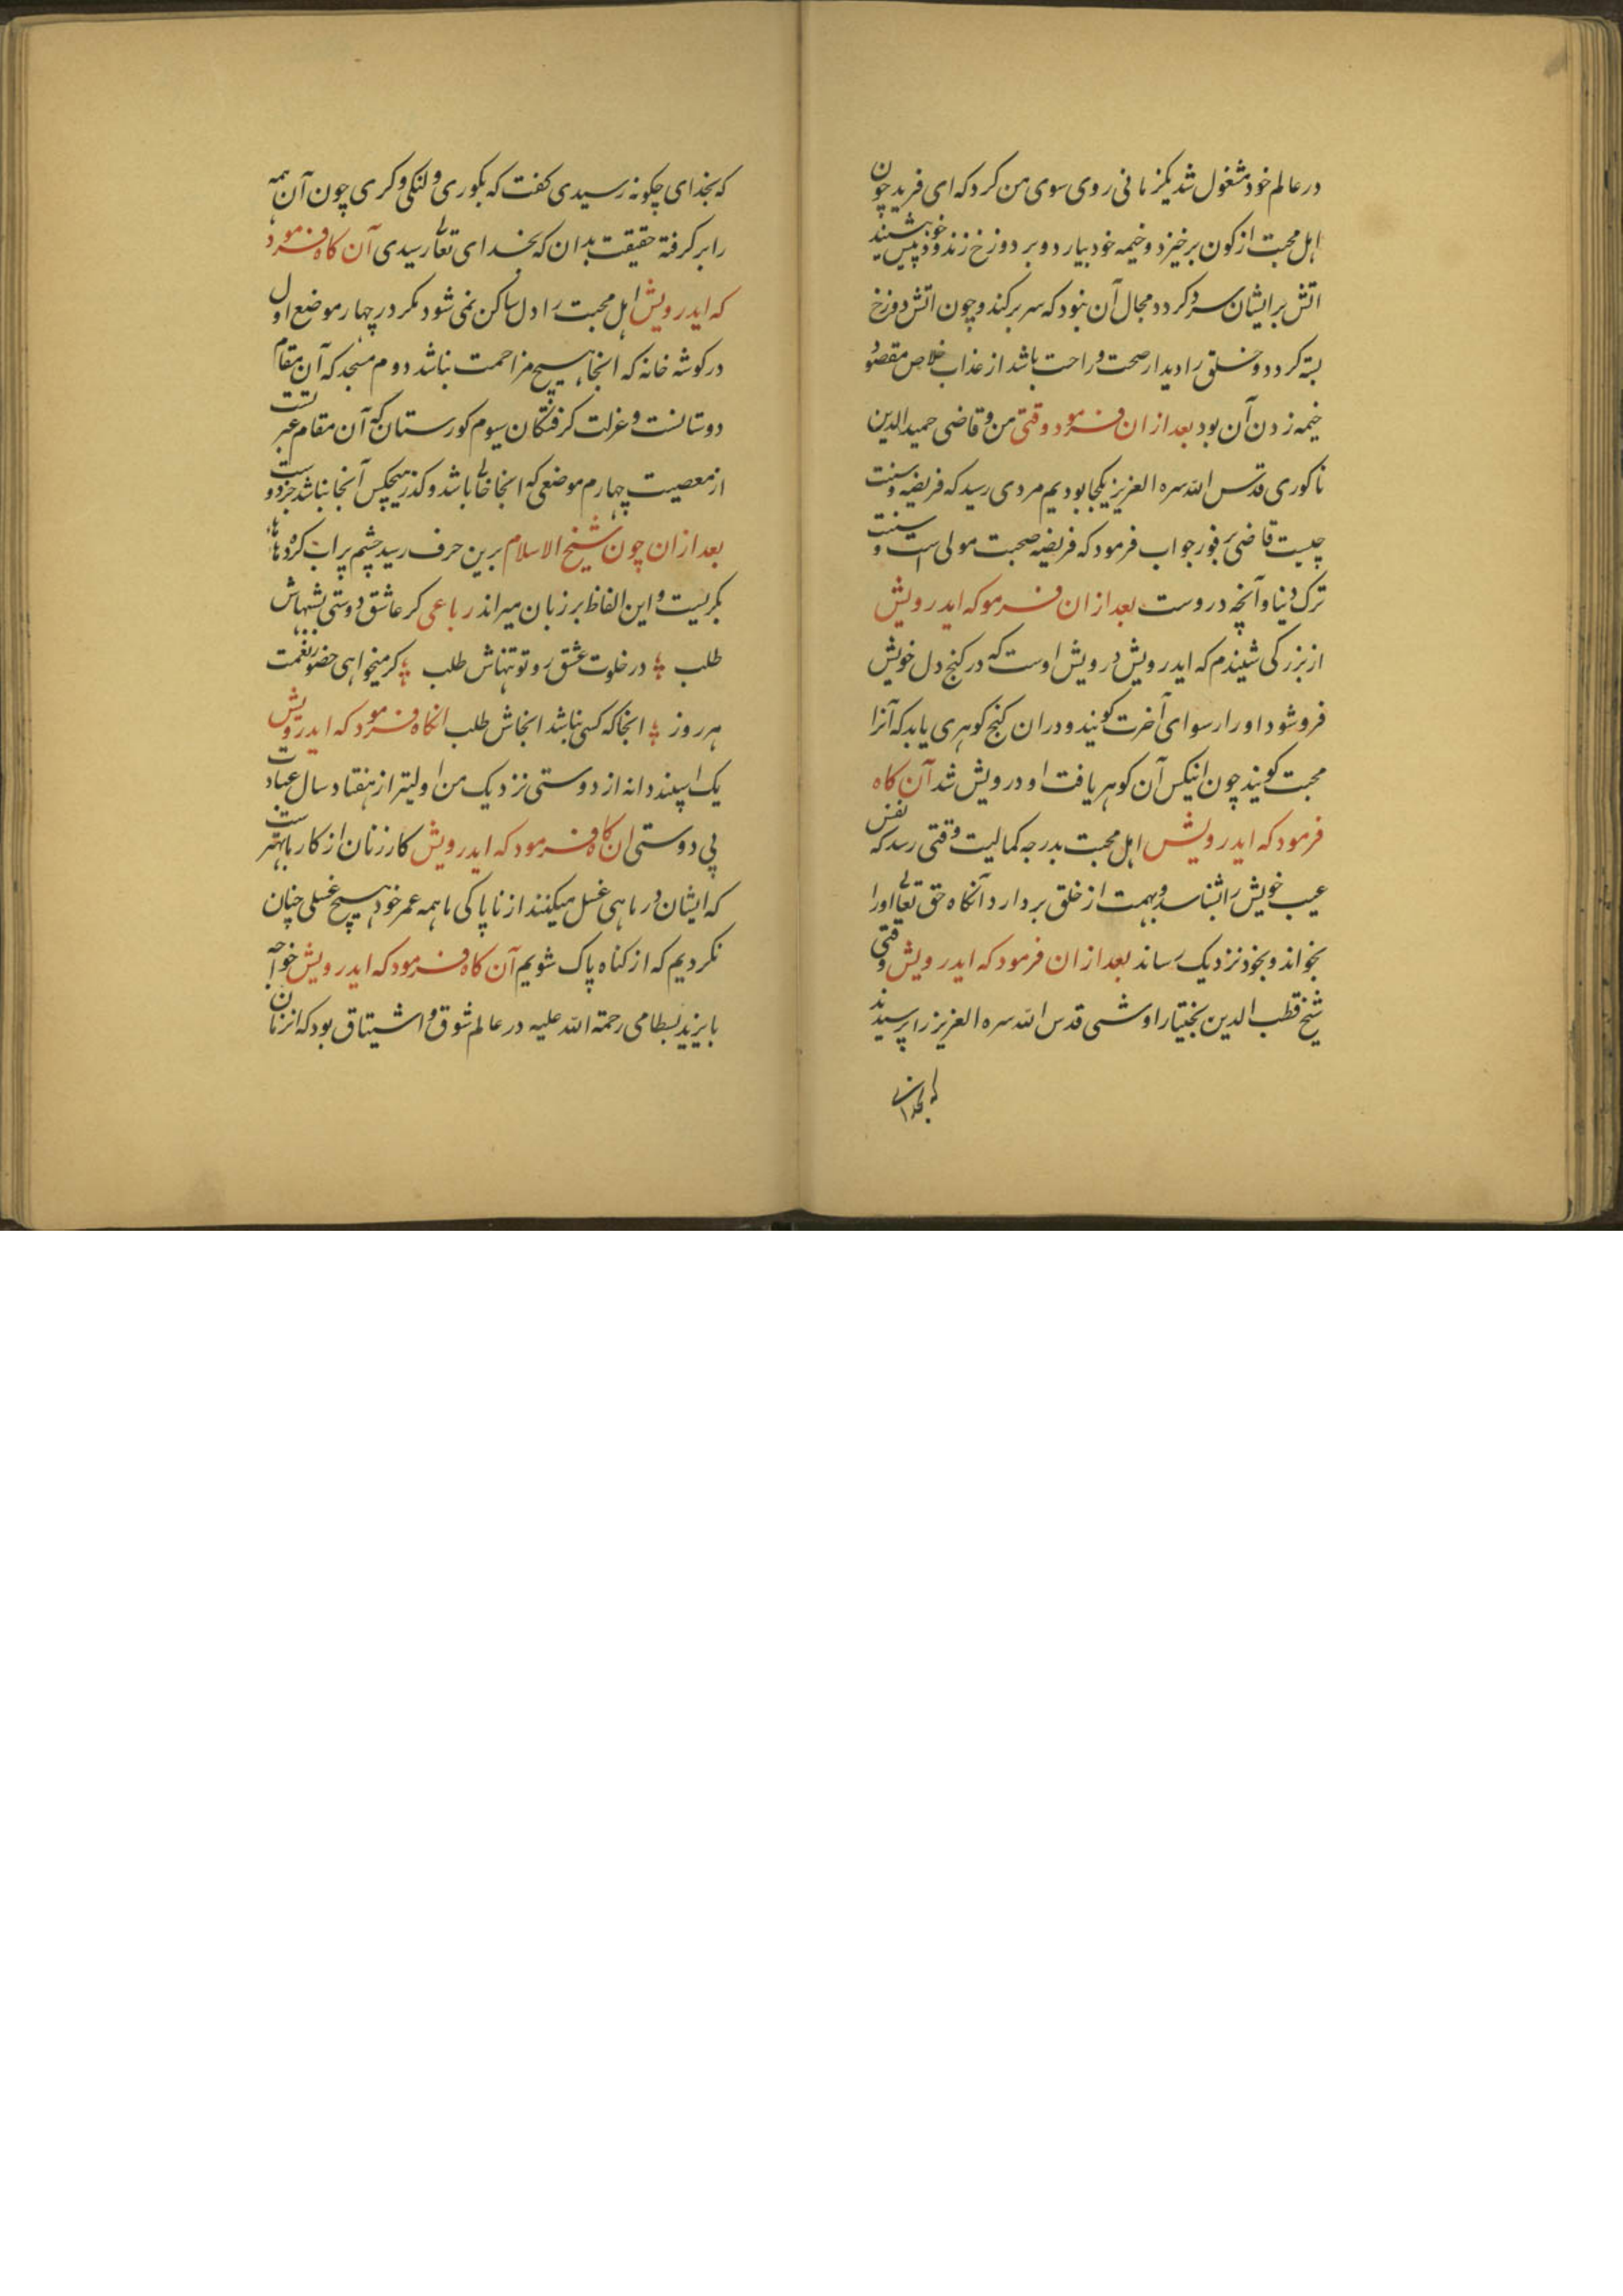 در عالم خود مشغول شد یکزمانی روی سوی من کرد که ای فرید چون
اهل محبت از کون برخیزد و خیمه خود بیارد و بر دوزخ زند و خود پیش نشیند
اتش بر ایشان سرد کردد مجال آن نبود که سر برکند و چون اتش دوزخ
بسته کردد و خلق را دیدار صحت و راحت باشد از عذاب خلاص مقصود
خیمه زدن آن بود بعد ازان فرمود وقتی من و قاضی حمید الدین
ناکوری قدس الله سره العزیز یکجا بودیم مردی رسید که فریضه و سنت
چیست قاضی بفور جواب فرمود که فریضه صحبت مولی است و سنت
ترک دنیا و آنچه دروست بعد ازان فرمو که ایدرویش
از بزرکی شنیدم که ایدرویش درویش اوست که در کنج دل خویش
فروشود او را رسوای آخرت کویند و دران کنج کوهری یابد که آنرا
محبت کویند چون انیکس آن کوهر یافت او درویش شد آن کاه
فرمود که ایدرویش اهل محبت بدرجه کمالیت وقتی رسد که نفس
عیب خویش را شناسد و بهمت از خلق بردارد آنکاه حق تعالی اورا
بخواند و بخود نزدیک رساند بعد ازان فرمود که ایدرویش وقتی
شیخ قطب الدین بختیار اوشی قدس الله سره العزیز را پرسیدند
که بخدای
که بخدای چکونه رسیدی کفت که بکوری و لنکی و کری چون آن همه
را برکرفته حقیقت بدان که بخدای تعالی رسیدی آن کاه فرمود
که ایدرویش اهل محبت را دل ساکن نمی شود مکر در چهار موضع اول
در کوشه خانه که انجا هیچ مزاحمت نباشد دوم مسجد که آن مقام
دوستانست و عزلت کرفتکان سیوم کورستان که آن مقام عبرتست
از معصیت چهارم موضعی که انجا خالی باشد و کذر هیچکس آنجا نباشد جز دوست
بعد ازان چون شیخ الاسلام برین حرف رسید چشم پر اب کرد هاهای
بکریست و این الفاظ بر زبان میراند رباعی کر عاشق دوستی بشبهاش
طلب در خلوت عشق رو تو تنهاش طلب کر میخواهی حضور نعمت
هر روز انجا که کسی نباشد انجاش طلب انکاه فرمود که ایدرویش
یک اسپند دانه از دوستی نزدیک من اولیتر از هفتاد سال عبادت
بی دوستی ان کاه فرمود که ایدرویش کار زنان از کار ما بهتر است
که ایشان در ماهی غسل میکنند از ناپاکی ما همه عمر خود هیچ غسلی چنان
نکردیم که از کناه پاک شویم آن کاه فرمود که ایدرویش خواجه
بایزید بسطامی رحمة الله علیه در عالم شوق و اشتیاق بود که انزمان